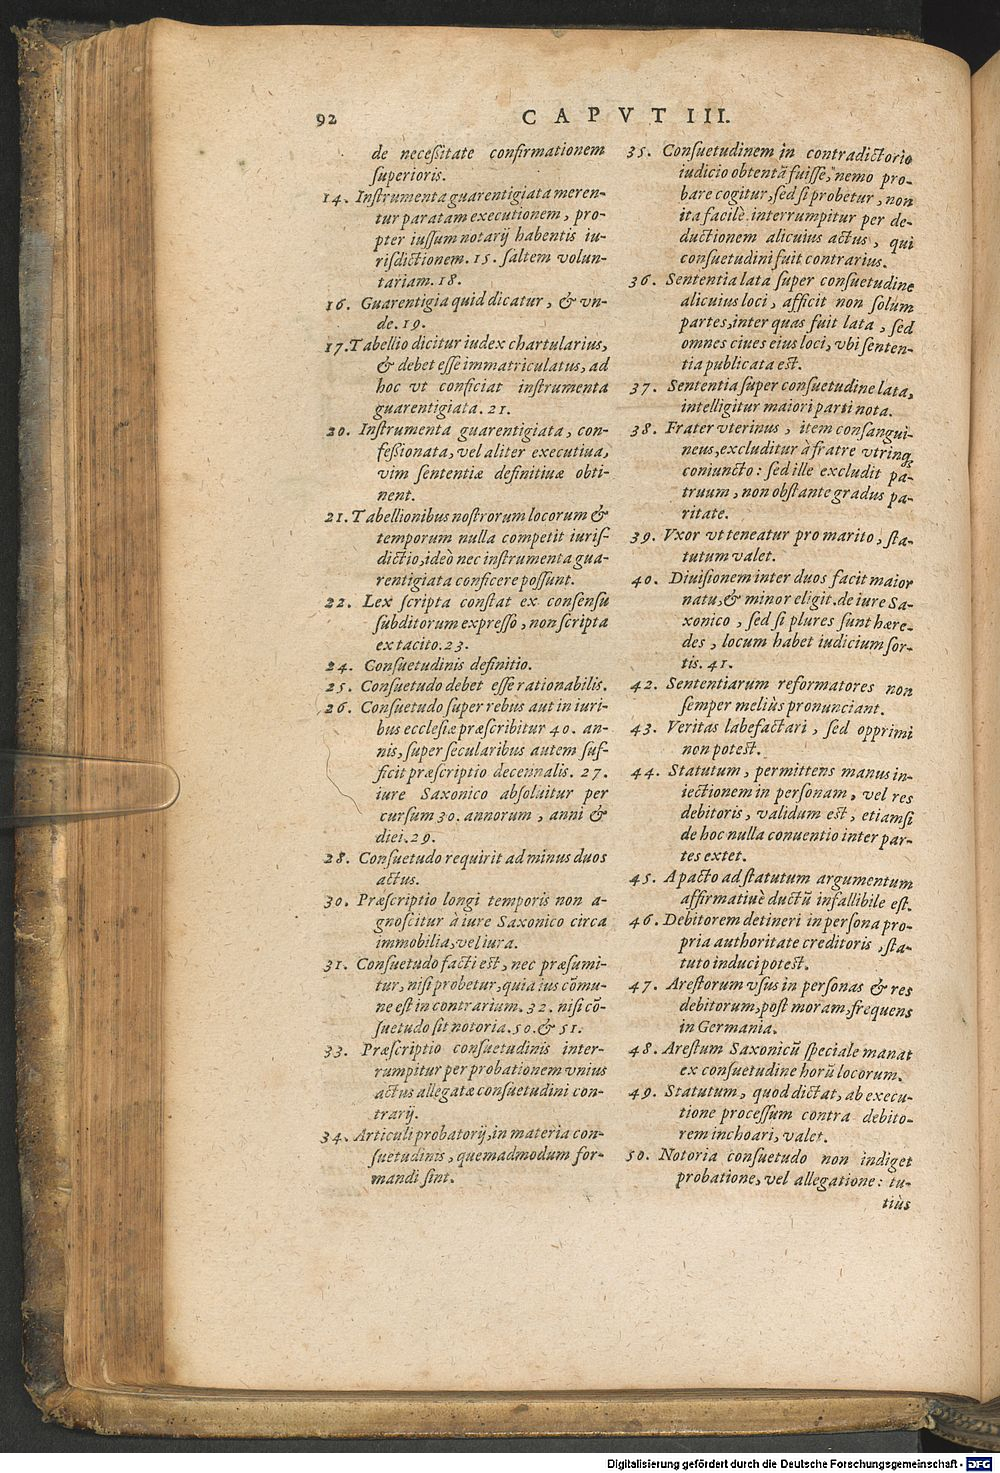 92
CAPVT III.
de necessitate confirmationem
superioris.
14. Instrumenta guarentigiata meren-
tur paratam executionem, pro-
pter iussum notarij habentis iu-
risdictionem. 15. saltem volun-
tariam. 18.
16. Guarentigia quid dicatur, & vn-
de. 19.
17. Tabellio dicitur iudex chartularius,
& debet esse immatriculatus, ad
hoc vt conficiat instrumenta
guarentigiata. 21.
20. Instrumenta guarentigiata, con-
fessionata, vel aliter executiua,
vim sententiæ definitiuæ obti-
nent.
21. Tabellionibus nostrorum locorum &
temporum nulla competit iuris-
dictio, ideò nec instrumenta gua-
rentigiata conficere possunt.
22. Lex scripta constat ex consensu
subditorum expresso, non scripta
ex tacito. 23.
24. Consuetudinis definitio.
25. Consuetudo debet esse rationabilis.
26. Consuetudo super rebus aut in iuri-
bus ecclesiæ præscribitur 40. an-
nis, super secularibus autem suf-
ficit præscriptio decennalis. 27.
iure Saxonico absoluitur per
cursum 30. annorum, anni &
diei. 29.
28. Consuetudo requirit ad minus duos
actus.
30. Præscriptio longi temporis non a-
gnoscitur à iure Saxonico circa
immobilia, vel iura.
31. Consuetudo facti est, nec præsumi-
tur, nisi probetur, quia ius cõmu-
ne est in contrarium. 32. nisi cō-
suetudo sit notoria. 50. & 51.
33. Præscriptio consuetudinis inter-
rumpitur per probationem vnius
actus allegatæ consuetudini con-
trarij.
34. Articuli probatorij, in materia con-
suetudinis, quemadmodum for-
mandi sint.
35. Consuetudinem in contradictorio
iudicio obtentā fuisse, nemo pro-
bare cogitur, sed si probetur, non
ita facilè interrumpitur per de-
ductionem alicuius actus, qui
consuetudini fuit contrarius.
36. Sententia lata super consuetudine
alicuius loci, afficit non solum
partes, inter quas fuit lata, sed
omnes ciues eius loci, vbi senten-
tia publicata est.
37. Sententia super consuetudine lata,
intelligitur maiori parti nota.
38. Frater vterinus, item consangui-
neus, excluditur à fratre vtrinq;
coniuncto: sed ille excludit pa-
truum, non obstante gradus pa-
ritate.
39. Vxor vt teneatur pro marito, sta-
tutum valet.
40. Diuisionem inter duos facit maior
natu, & minor eligit. de iure Sa-
xonico, sed si plures sunt hære-
des, locum habet iudicium sor-
tis. 41.
42. Sententiarum reformatores non
semper meliùs pronunciant.
43. Veritas labefactari, sed opprimi
non potest.
44. Statutum, permittens manus in-
iectionem in personam, vel res
debitoris, validum est, etiamsi
de hoc nulla conuentio inter par-
tes extet.
45. A pacto ad statutum argumentum
affirmatiuè ductū infallibile est.
46. Debitorem detineri in persona pro-
pria authoritate creditoris, sta-
tuto induci potest.
47. Arestorum vsus in personas & res
debitorum, post moram, frequens
in Germania.
48. Arestum Saxonicū speciale manat
ex consuetudine horū locorum.
49. Statutum, quod dictat, ab execu-
tione processum contra debito-
rem inchoari, valet.
50. Notoria consuetudo non indiget
probatione, vel allegatione: tu-
tiùs
Digitalisierung gefördert durch die Deutsche Forschungsgemeinschaft - DFG